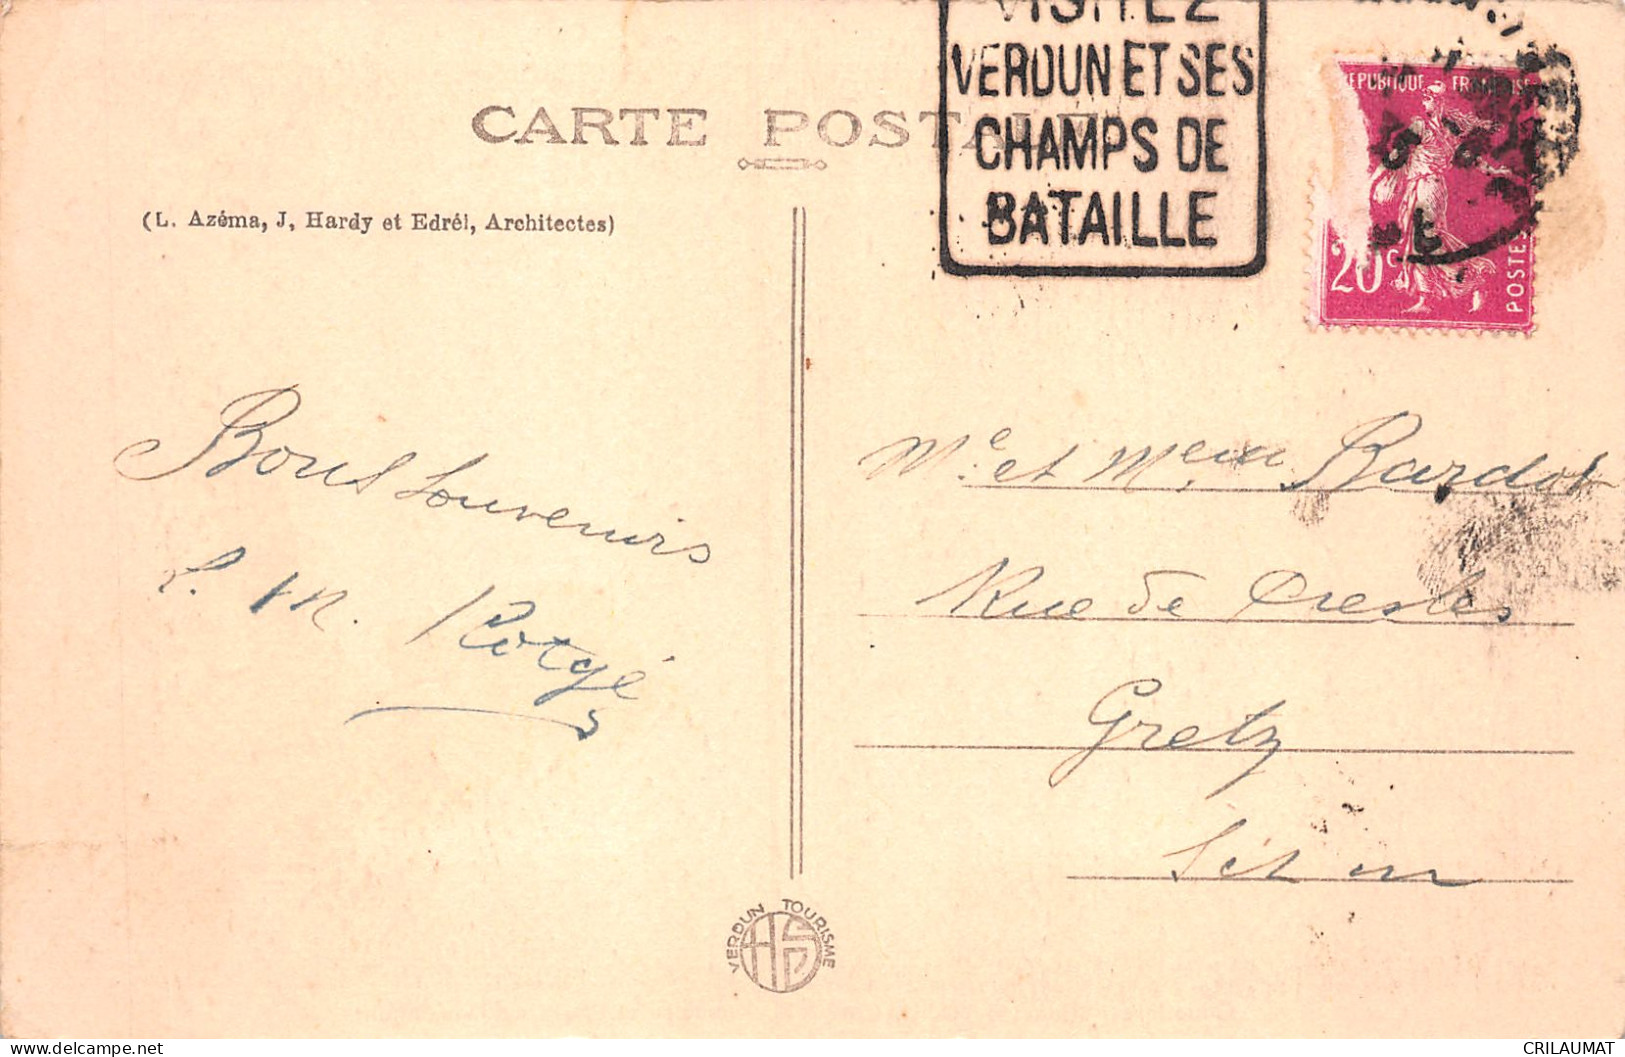 CARTE POSTALE
(L. Azéma, J. Hardy et Edrél, Architectes)
VISITEZ
VERDUN ET SES
CHAMPS DE
BATAILLE
REPUBLIQUE FRANÇAISE
20c
POSTES
Bons Souvenirs
L. M. Rotgé
Me et Meur Bardot
Rue de Presles
Gretz
S et M
VERDUN TOURISME
HS
CRILAUMAT